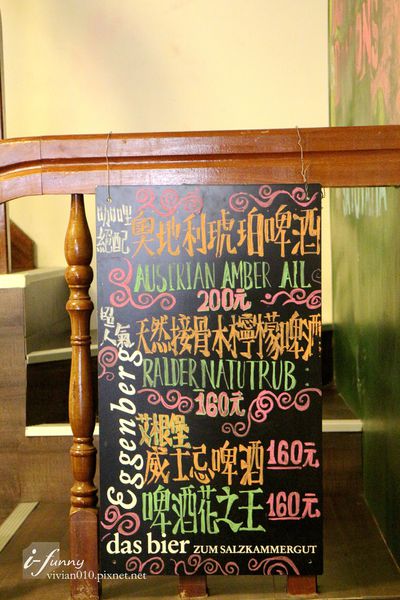 咖哩
絕配
奧地利琥珀啤酒
AUSTRIAN AMBER AIL
200元
超人氣
天然接骨木檸檬啤酒
RALDER NATUTRUB:
160元
Eggenberg
艾根堡
威士忌啤酒 160元
啤酒花之王 160元
das bier ZUM SALZKAMMERGUT
i-funny
vivian010.pixnet.net